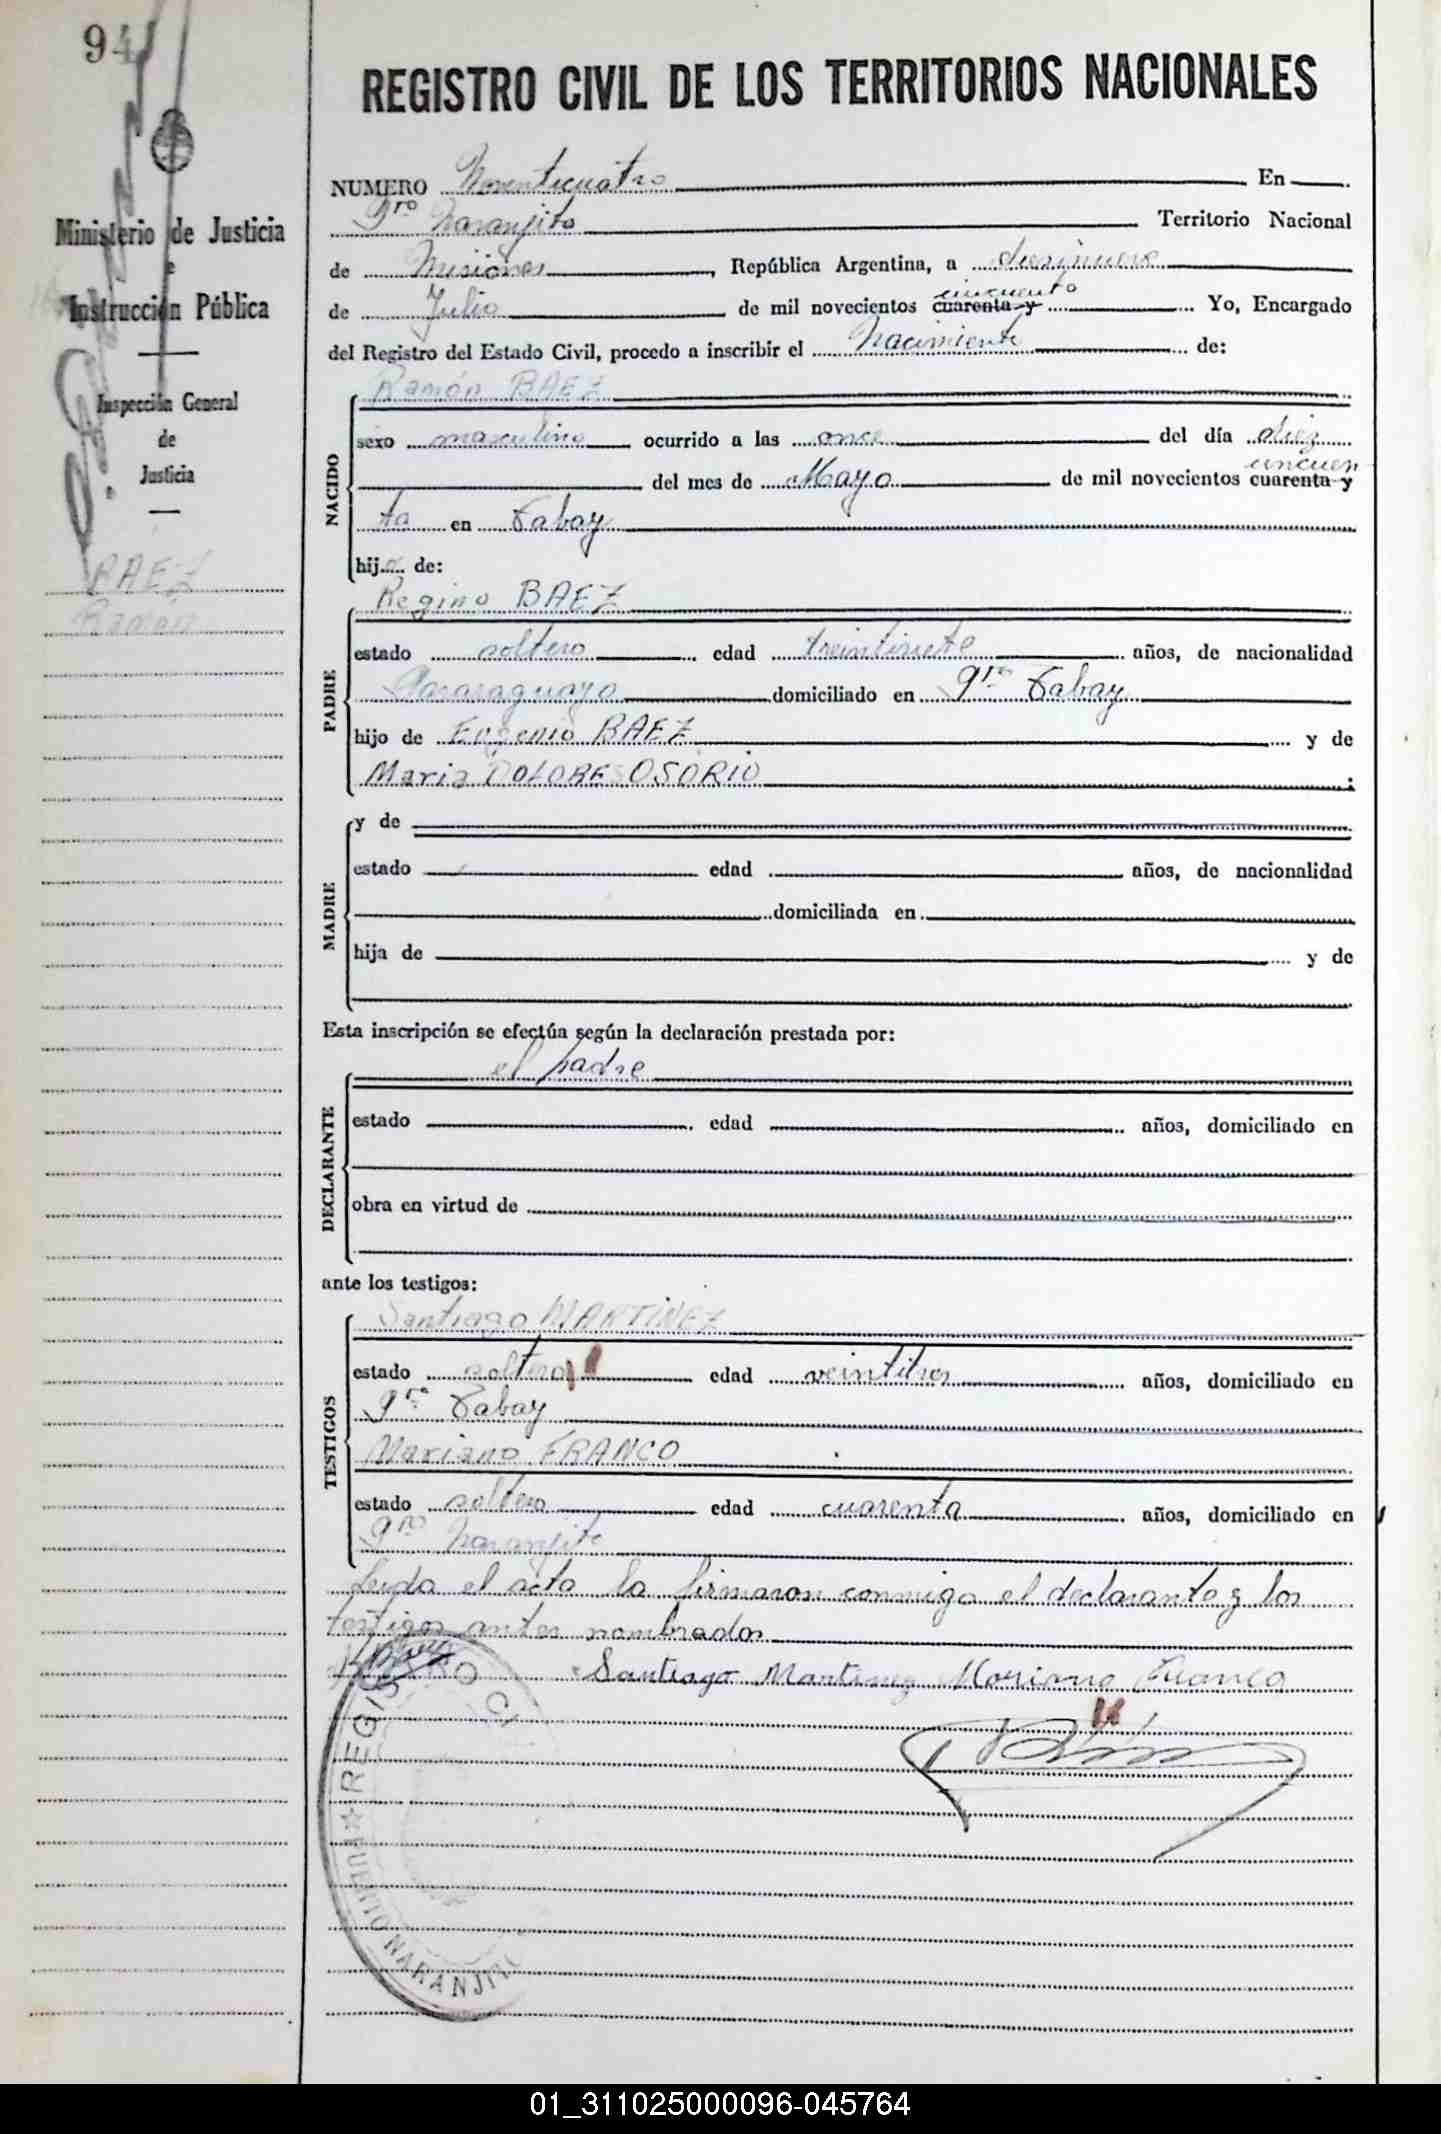 94
Ministerio de Justicia
e
Instrucción Pública
Inspección General
de
Justicia
BAEZ
Ramón
REGISTRO CIVIL DE LOS TERRITORIOS NACIONALES
NUMERO Noventicuatro En
Pto Naranjito Territorio Nacional
de Misiones, República Argentina, a diesinueve
de Julio de mil novecientos cuarenta y cincuenta Yo, Encargado
del Registro del Estado Civil, procedo a inscribir el Nacimiento de:
NACIDO
Ramón BAEZ
sexo masculino ocurrido a las once del día diez
del mes de Mayo de mil novecientos cuarenta y cincuen
ta en Tabay
hijo de:
PADRE
Regino BAEZ
estado soltero edad treintisiete años, de nacionalidad
Pararaguaya domiciliado en Pto Tabay
hijo de Eugenio BAEZ y de
Maria DOLORES OSORIO ;
MADRE
y de
estado edad años, de nacionalidad
domiciliada en
hija de y de
Esta inscripción se efectúa según la declaración prestada por:
DECLARANTE
el padre
estado edad años, domiciliado en
obra en virtud de
ante los testigos:
TESTIGOS
Santiago MARTINEZ
estado soltero edad veintitres años, domiciliado en
Pto Tabay
Mariano FRANCO
estado soltero edad cuarenta años, domiciliado en
Pto Naranjito
Leida el acta la firmaron conmigo el declarante y los
testigos antes nombrados
Santiago Martinez Mariano Franco
REGISTRO CI
PUERTO NARANJITO
01_311025000096-045764